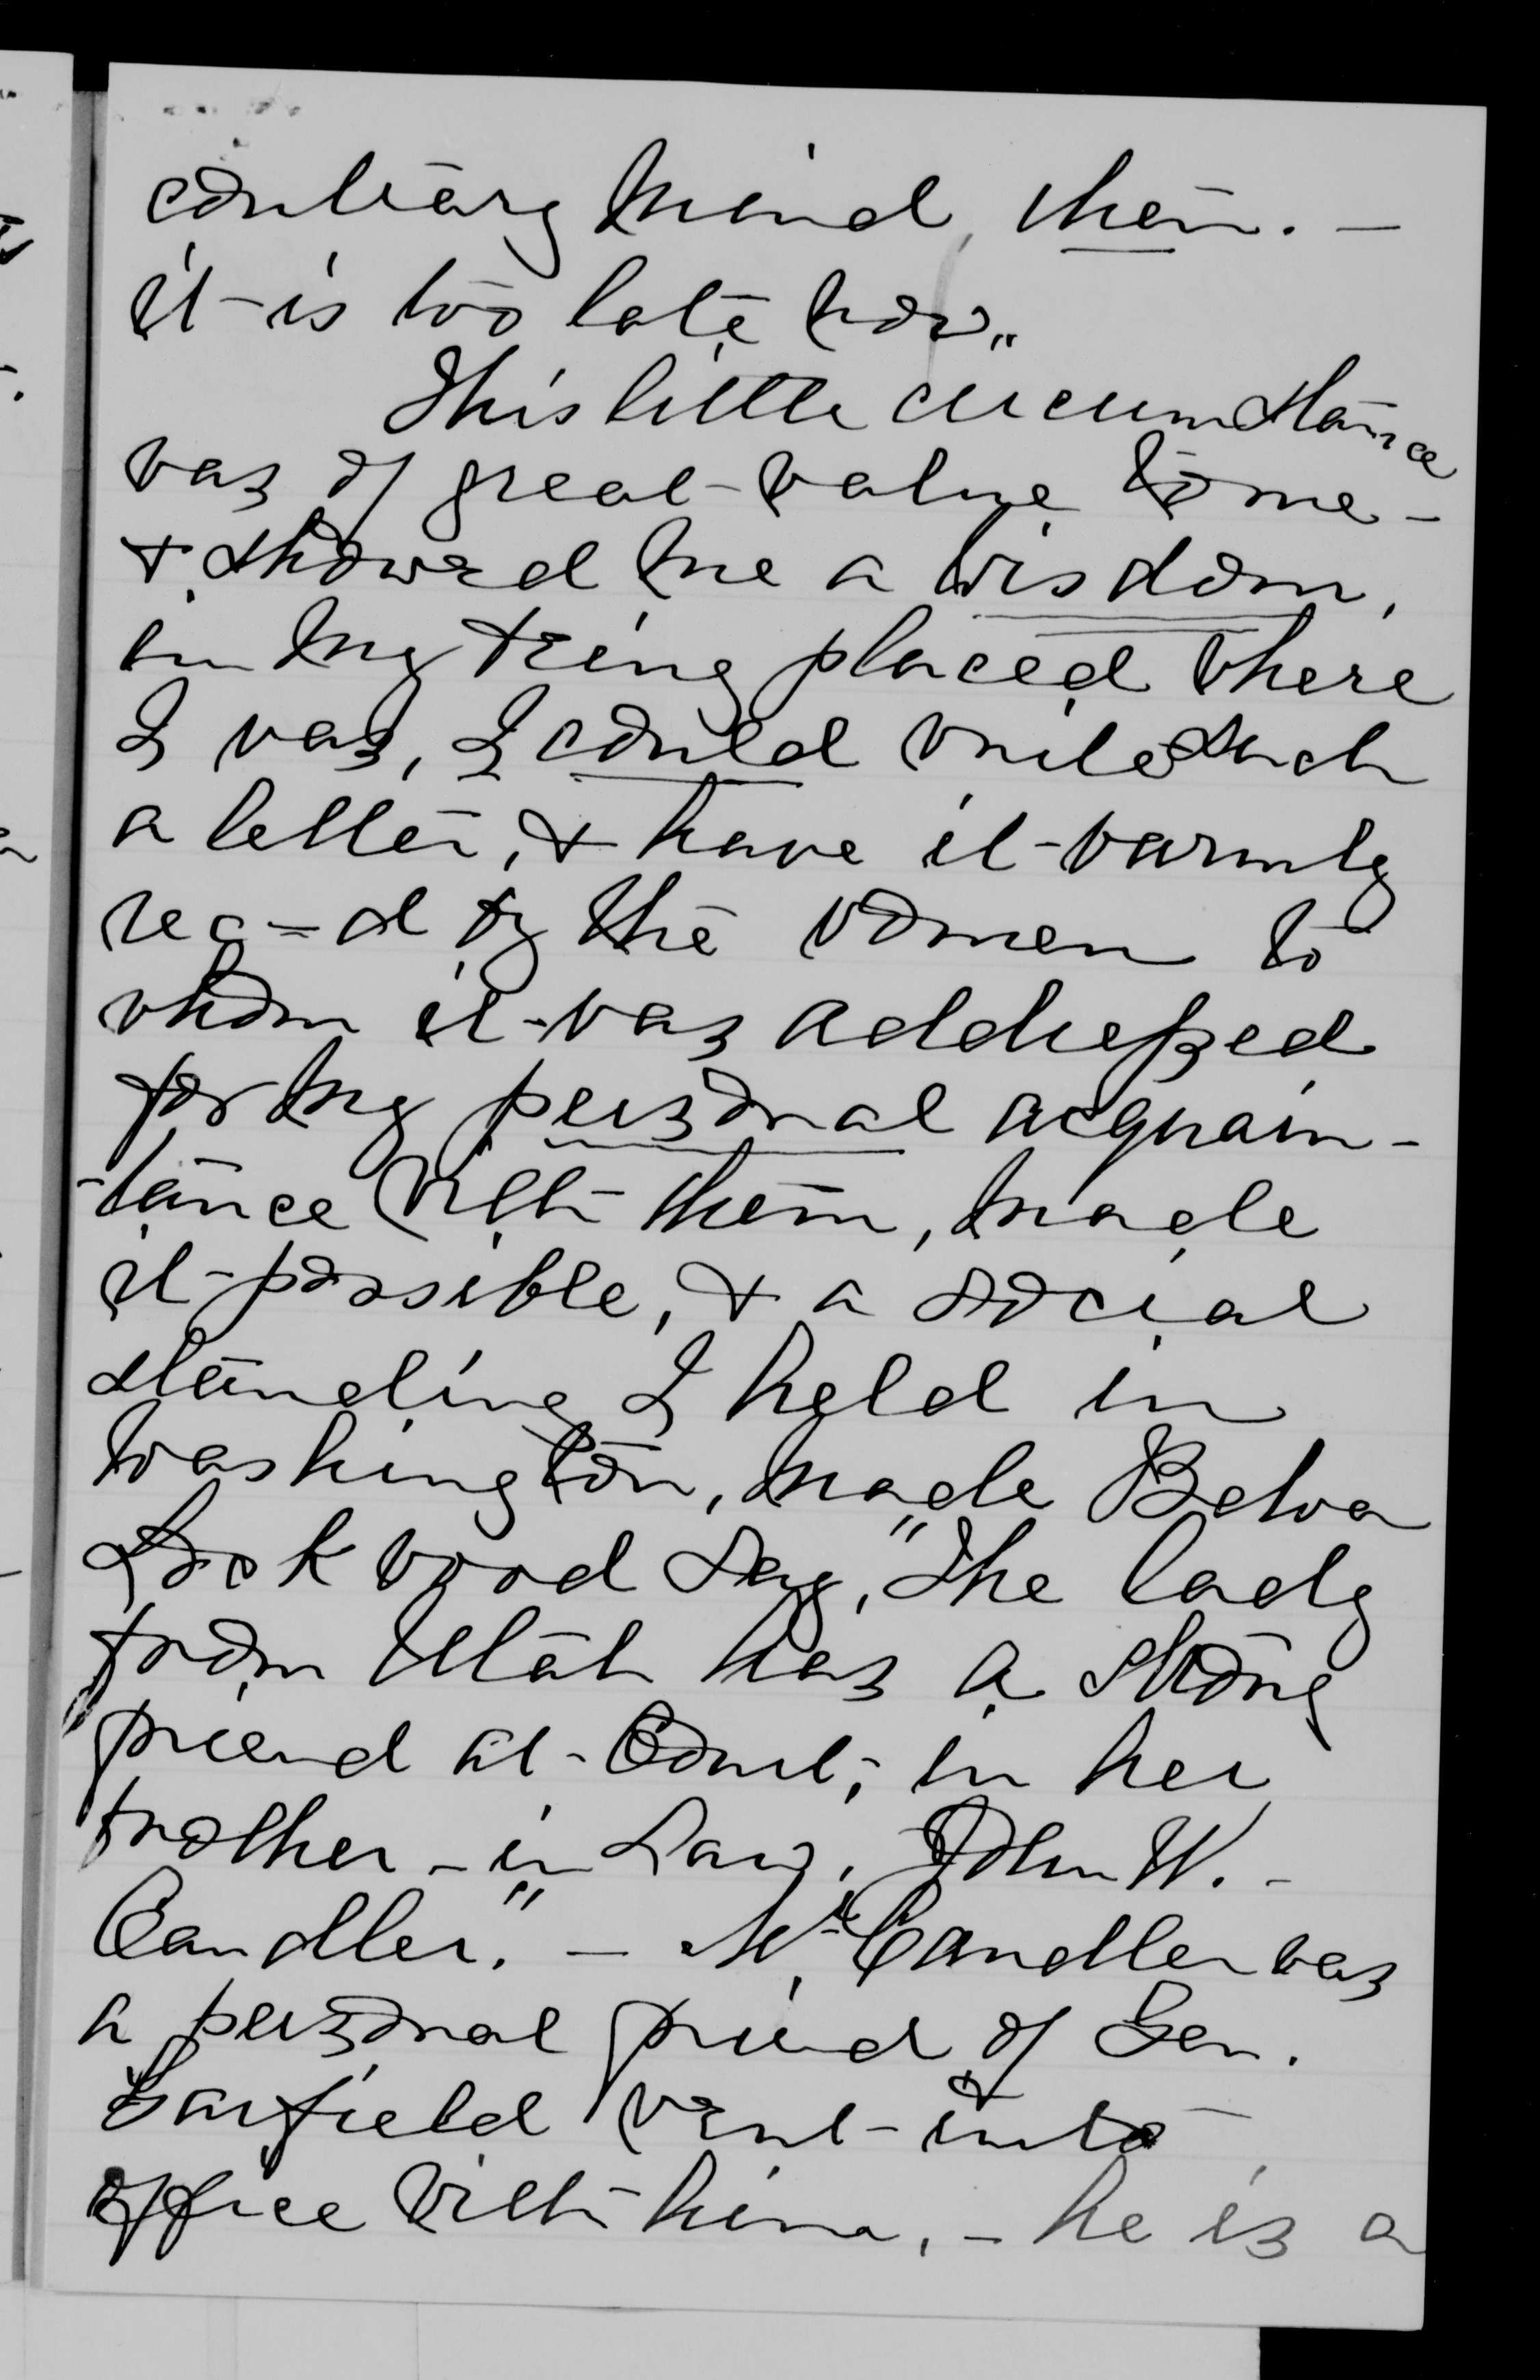 contrary mind, then. —
it is too late now"
This little circumstance
was of great value to me -
& showed me a wisdom,
in my being placed where
I was, I could write such
a letter, & have it warmly
rec=d by the women to
whom it was addressed
for my personal acquain-
-tance with them, made
it possible, & a social
standing I held in
Washington, made Belva
Lockwood say, "The lady
from Utah has a strong
friend at Court; in her
brother-in Law, John W. -
Candler." — Mr. Candler was
a personal friend of Gen.
Garfield & went into
office with him, - he is a